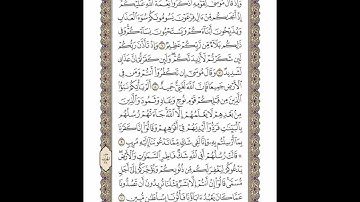 وَإِذْ قَالَ مُوسَىٰ لِقَوْمِهِ ٱذْكُرُوا۟ نِعْمَةَ ٱللَّهِ عَلَيْكُمْ
إِذْ أَنجَىٰكُم مِّنْ ءَالِ فِرْعَوْنَ يَسُومُونَكُمْ سُوٓءَ ٱلْعَذَابِ
وَيُذَبِّحُونَ أَبْنَآءَكُمْ وَيَسْتَحْيُونَ نِسَآءَكُمْ وَفِى
ذَٰلِكُم بَلَآءٌ مِّن رَّبِّكُمْ عَظِيمٌ ٦ وَإِذْ تَأَذَّنَ رَبُّكُمْ
لَئِن شَكَرْتُمْ لَأَزِيدَنَّكُمْ وَلَئِن كَفَرْتُمْ إِنَّ عَذَابِى
لَشَدِيدٌ ٧ وَقَالَ مُوسَىٰٓ إِن تَكْفُرُوٓا۟ أَنتُمْ وَمَن فِى
ٱلْأَرْضِ جَمِيعًا فَإِنَّ ٱللَّهَ لَغَنِىٌّ حَمِيدٌ ٨ أَلَمْ يَأْتِكُمْ نَبَؤُا۟
ٱلَّذِينَ مِن قَبْلِكُمْ قَوْمِ نُوحٍ وَعَادٍ وَثَمُودَ وَٱلَّذِينَ
مِنۢ بَعْدِهِمْ لَا يَعْلَمُهُمْ إِلَّا ٱللَّهُ جَآءَتْهُمْ رُسُلُهُم
بِٱلْبَيِّنَٰتِ فَرَدُّوٓا۟ أَيْدِيَهُمْ فِىٓ أَفْوَٰهِهِمْ وَقَالُوٓا۟ إِنَّا كَفَرْنَا
بِمَآ أُرْسِلْتُم بِهِۦ وَإِنَّا لَفِى شَكٍّ مِّمَّا تَدْعُونَنَآ إِلَيْهِ مُرِيبٍ ٩
قَالَتْ رُسُلُهُمْ أَفِى ٱللَّهِ شَكٌّ فَاطِرِ ٱلسَّمَٰوَٰتِ وَٱلْأَرْضِ
يَدْعُوكُمْ لِيَغْفِرَ لَكُم مِّن ذُنُوبِكُمْ وَيُؤَخِّرَكُمْ إِلَىٰٓ أَجَلٍ
مُّسَمًّى قَالُوٓا۟ إِنْ أَنتُمْ إِلَّا بَشَرٌ مِّثْلُنَا تُرِيدُونَ أَن تَصُدُّونَا
عَمَّا كَانَ يَعْبُدُ ءَابَآؤُنَا فَأْتُونَا بِسُلْطَٰنٍ مُّبِينٍ ١٠